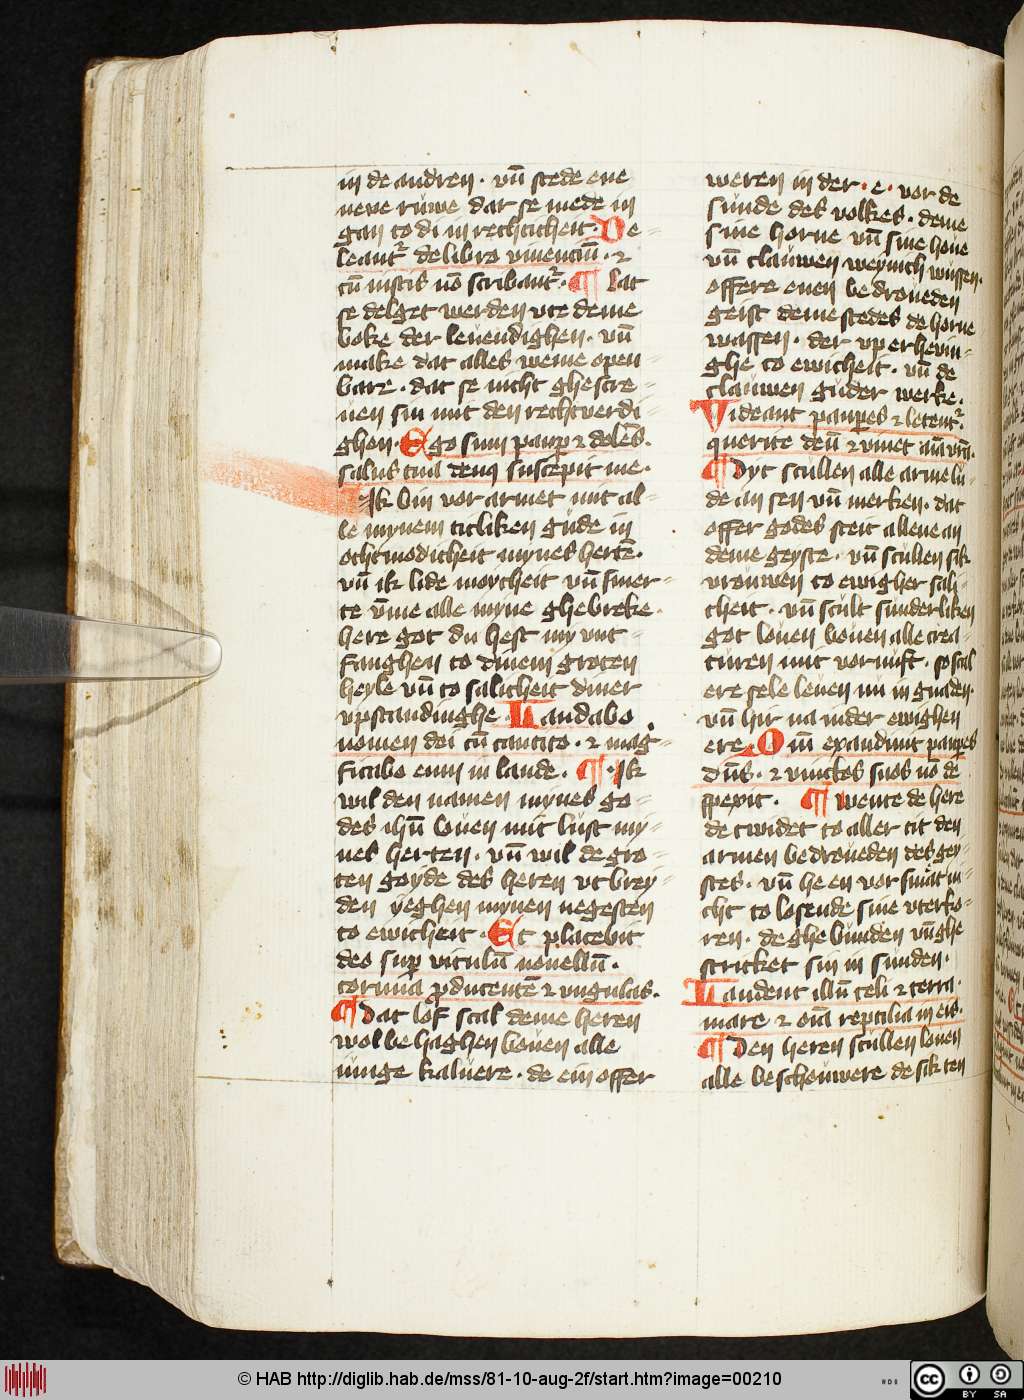 in de andren · vn̄ stede ene
neve ruwe dar se mede in
gan to di in rechticheit · De
leant᷑ de libro viuenciū · ⁊
cū iustis nō scribant᷑ · ¶ Lat
se delget werden vte deme
boke der leuendighen · vn̄
make dat alles weme open
bare · dat se nicht ghescre
uen sin mit den rechtverdi
ghen · Ego sum paup̱ ⁊ dolēs ·
salus tua deus suscepit me ·
Ik bin vor armet mit al
le mynem titliken gude in
othmodicheit mynes hertē ·
vn̄ ik lide moycheit vn̄ smer
te vm̄e alle myne ghebreke ·
here got du hest my vnt
fanghen to dinem groten
heyle vn̄ to salicheit diner
vpstandinghe · Laudabo
nomen dei cū cantico · ⁊ mag
ficabo eum in laude · ¶ Ik
wil den namen mynes go
des ihū louen mit lust my
nes herten · vn̄ wil de gro
ten goyde des heren vt brey
den yeghen mynen negesten
to ewicheit · Et placebit
deo sup̱ vitulū nouellū ·
cornua ꝓducentē ⁊ vngulas ·
¶ Dat lof scal deme heren
wol behaghen bouen alle
iunge kaluere · de ein offer
weren in der · e · vor de
sunde des volkes · deme
sine horne vn̄ sine houe
vn̄ clauwen weynich wussen ·
offere enen bedroueden
geist deme stedes de horne
wassen · der vp erheuin
ghe to ewicheit · vn̄ de
clauwen guder werke ·
Videant paup̱es ⁊ letent᷑
querite deū ⁊ viuet aīa vr̄a ·
¶ Dyt scullen alle arme lu
de an sen vn̄ merken · dat
offer godes steit allene an
deme geyste · vn̄ scullen sik
vrouwen to ewigher sali
cheit · vn̄ scult sunderliken
got louen bouen alle crea
turen mit vornuft · so scal
ere sele leuen nu in gnaden ·
vn̄ hir na in der ewighen
ere · Qm̄ exaudiuit paup̱es
dn̄s · ⁊ vinctos suos nō de
spexit · ¶ Wente de here
de twidet to aller tit den
armen bedroueden des gey
stes · vn̄ he en vor smat ni
cht to losende sine vterko
ren · de ghebunden vn̄ ghe
stricket sin in sunden ·
Laudent illū celi ⁊ terra ·
mare ⁊ oīa reptilia in eis ·
¶ Den heren scullen louen
alle beschouwere de sik ten
© HAB http://diglib.hab.de/mss/81-10-aug-2f/start.htm?image=00210
cc BY SA